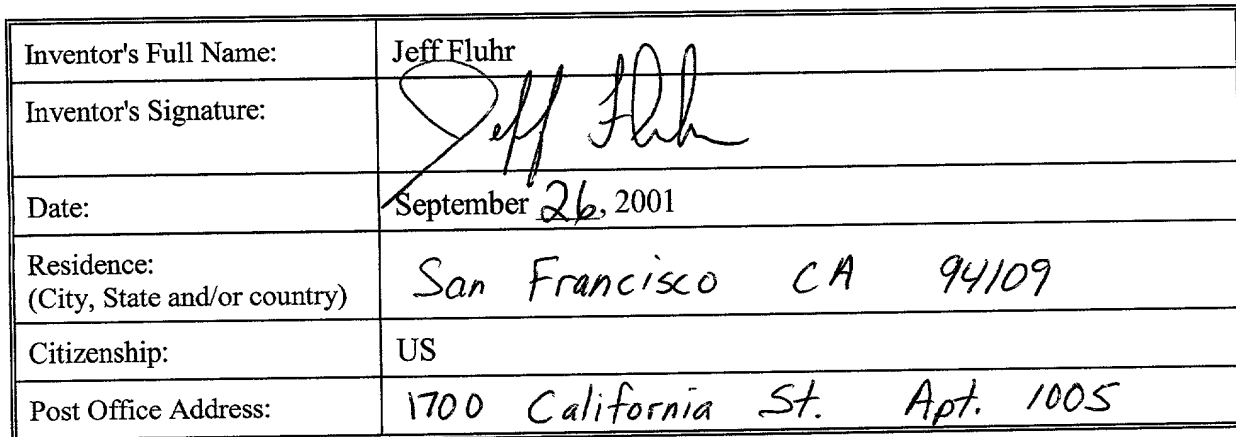 Inventor's Full Name: Jeff Fluhr
Inventor's Signature: Jeff Fluhr
Date: September 26, 2001
Residence:
(City, State and/or country) San Francisco CA 94109
Citizenship: US
Post Office Address: 1700 California St. Apt. 1005